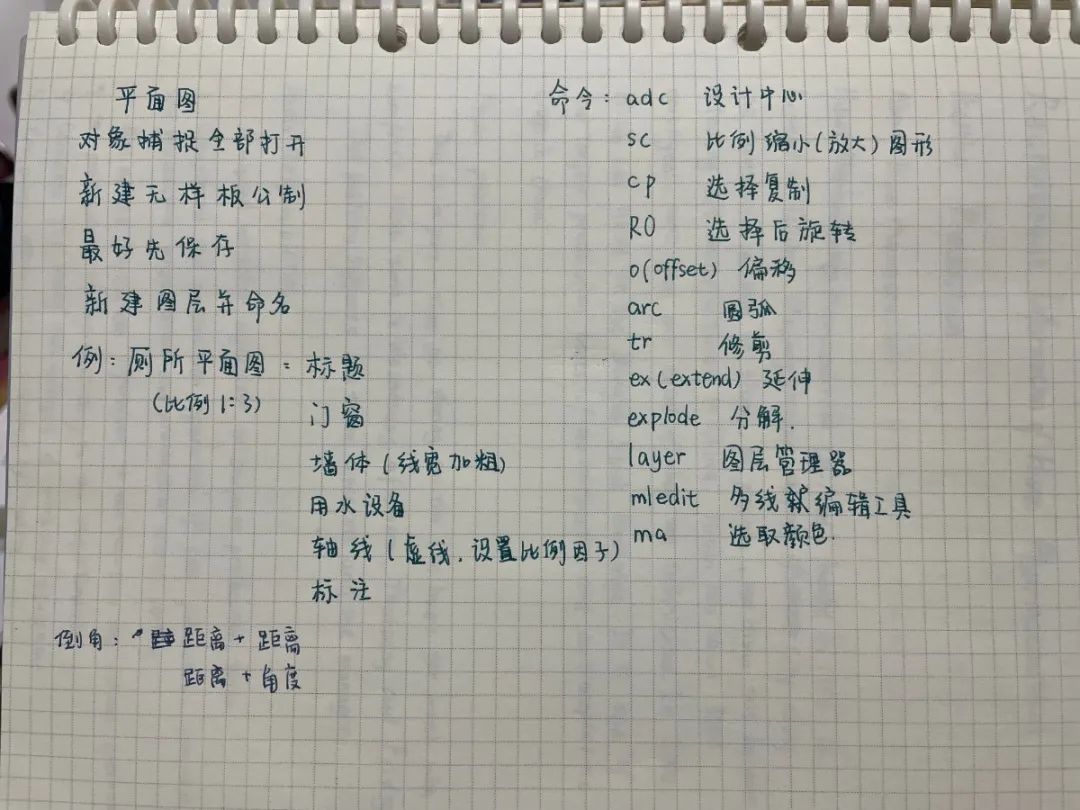 平面图
对象捕捉全部打开
新建无样板公制
最好先保存
新建图层并命名
例：厕所平面图：标题
（比例1:3）
门窗
墙体（线宽加粗）
用水设备
轴线（虚线，设置比例因子）
标注
倒角：距离+距离
距离+角度
命令：adc 设计中心
sc 比例缩小（放大）图形
cp 选择复制
RO 选择后旋转
o(offset) 偏移
arc 圆弧
tr 修剪
ex(extend) 延伸
explode 分解.
layer 图层管理器
mledit 多线编辑工具
ma 选取颜色.